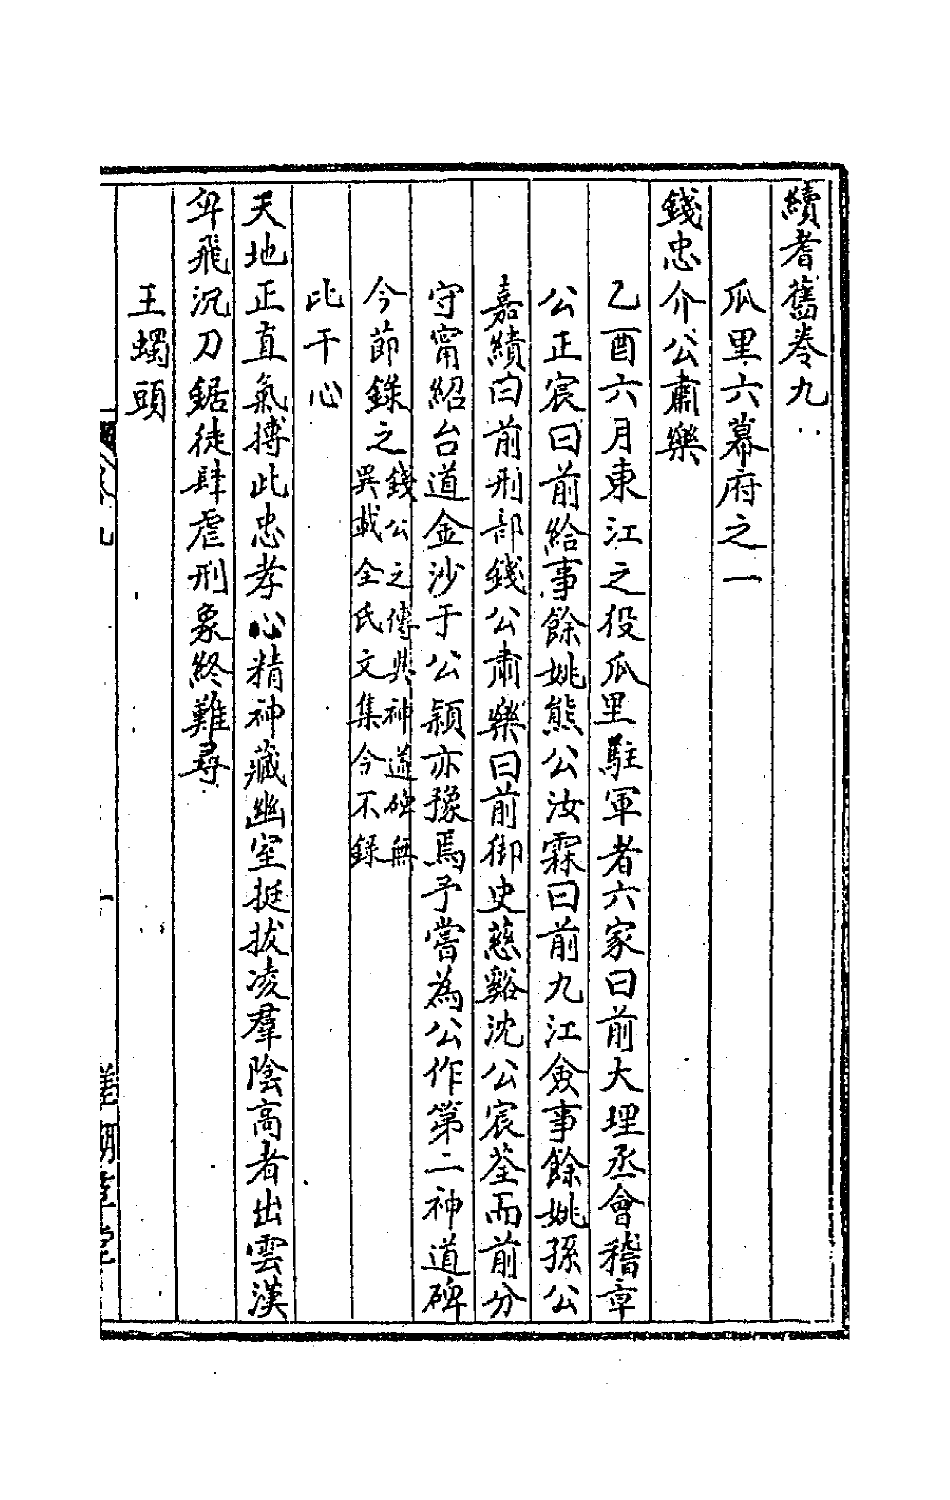 續耆舊卷九
瓜里六幕府之一
錢忠介公肅樂
乙酉六月東江之役瓜里駐軍者六家曰前大理丞會稽章
公正宸曰前給事餘姚熊公汝霖曰前九江僉事餘姚孫公
嘉績曰前刑部錢公肅樂曰前御史慈谿沈公宸荃而前分
守甯紹台道金沙于公穎亦豫焉予嘗為公作第二神道碑
今節錄之錢公之傳與神道碑無
吳載全氏文集今不錄
比干心
天地正直氣摶此忠孝心精神藏幽室挺拔凌羣陰高者出雲漢
卑飛沉刀鋸徒肆虐刑象終難尋
王蠋頭